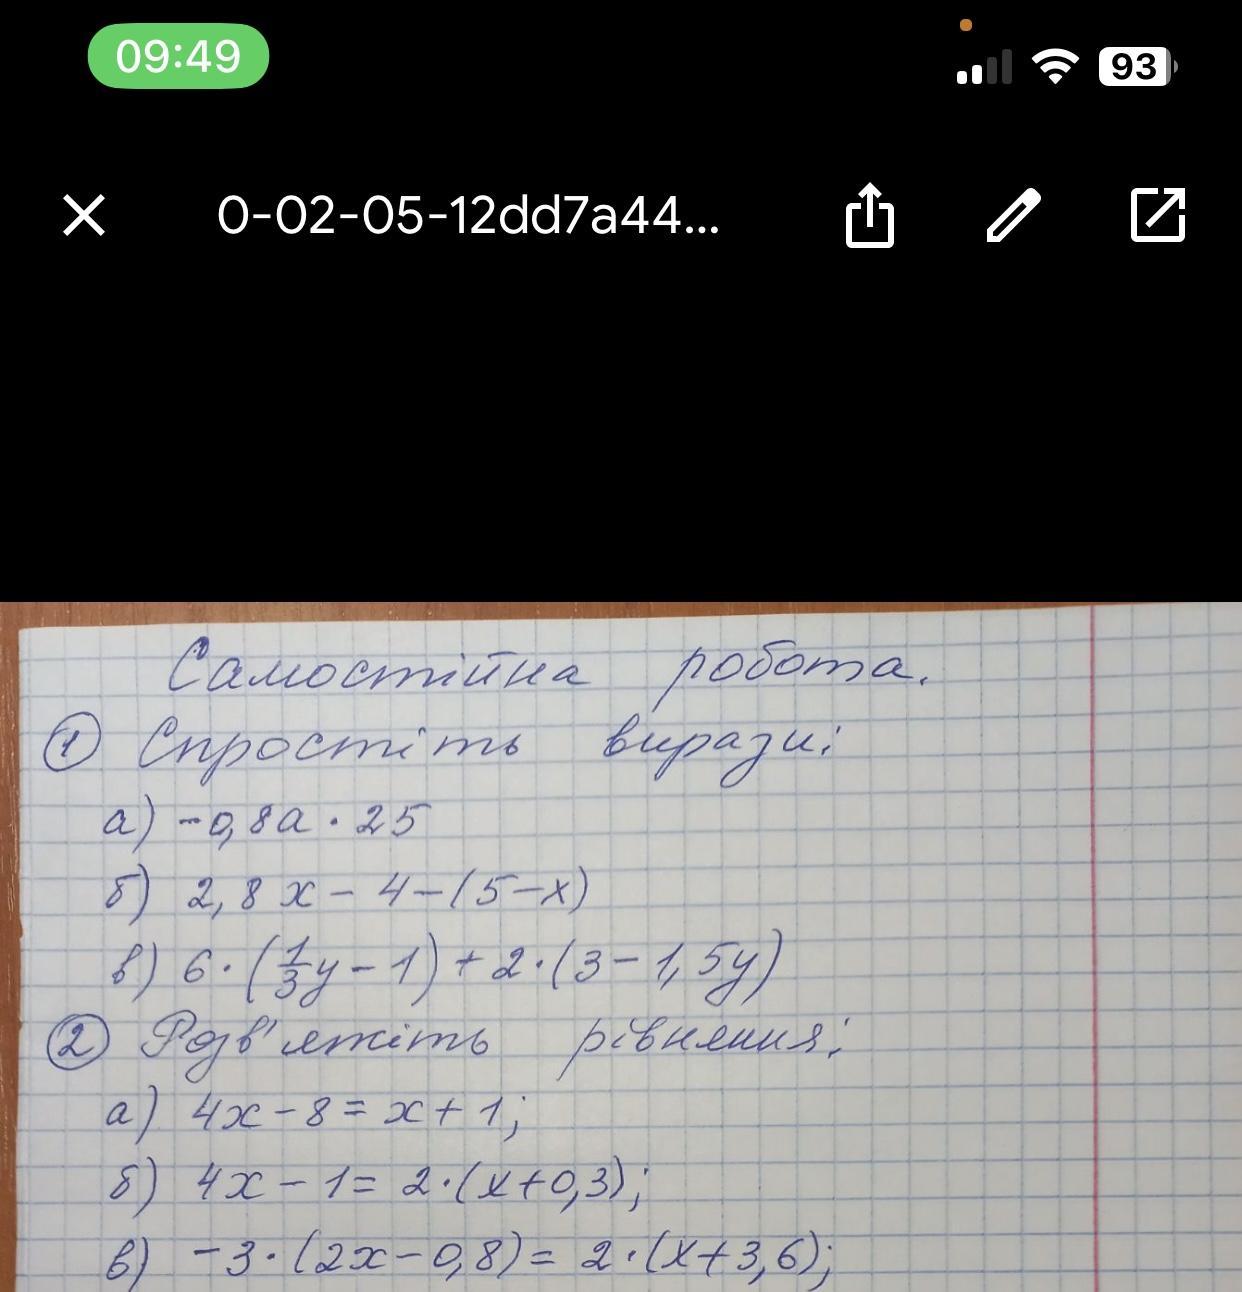 09:49
93
0-02-05-12dd7a44...
Самостійна робота.
1 Спростіть вирази:
а) -0,8а · 25
б) 2,8 х - 4 - (5 - х)
в) 6 · (1/3 у - 1) + 2 · (3 - 1,5у)
2 Розв'яжіть рівняння:
а) 4х - 8 = х + 1;
б) 4х - 1 = 2 · (х + 0,3);
в) -3 · (2х - 0,8) = 2 · (х + 3,6);